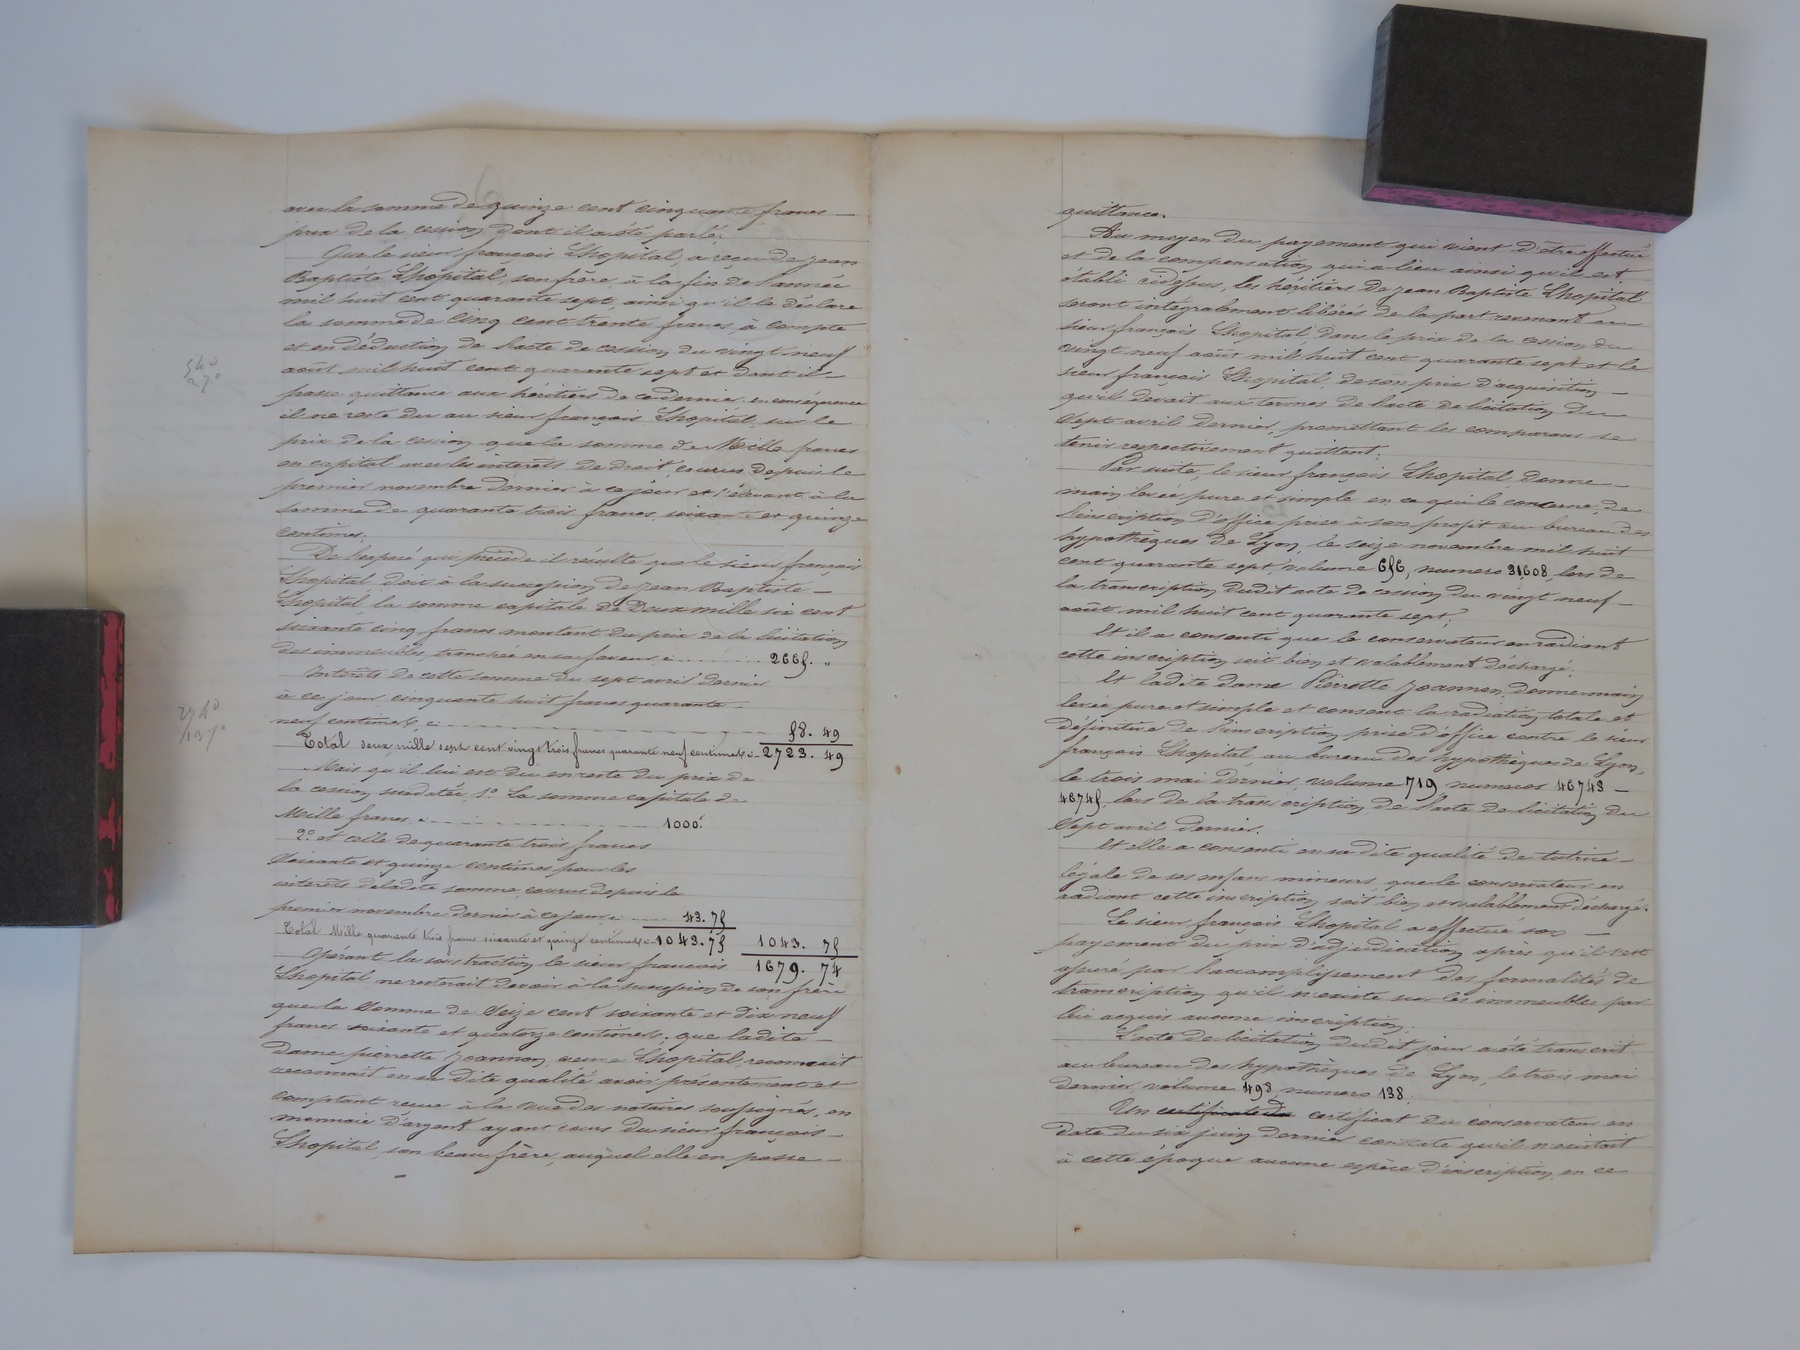 avec la somme de quinze cent cinquante francs —
prix de la cession dont il a été parlé.
Que le sieur françois Lhopital, a reçu de jean
Baptiste Lhopital, son frère, à la fin de l'année
mil huit cent quarante sept, ainsi qu'il le déclare
la somme de Cinq cent trente francs, à compte
et en déduction de l'acte de cession du vingt neuf
août mil huit cent quarante sept et dont il —
passe quittance aux héritiers de ce dernier. en conséquence
il ne reste du au sieur françois Lhopital, sur le
prix de la cession que la somme de Mille francs
en capital avec les intérêts de droit, courus depuis le
premier novembre dernier à ce jour et s'élevant à la
somme de quarante trois francs, soixante et quinze
centimes.
540
27°
De l'exposé qui précède il résulte que le sieur françois
Lhopital doit à la succession de jean Baptiste —
Lhopital la somme capitale de Deux mille six cent
soixante cinq francs montant du prix de la licitation
des immeubles, tranchée en sa faveur, ci 2665. "
Intérêts de cette somme du sept avril dernier
à ce jour cinquante huit francs quarante —
neuf centimes, ci 58. 49
Total deux mille sept cent vingt trois francs quarante neuf centimes ci 2723. 49
2740
137°
Mais qu'il lui est du en reste du prix de
la cession susdatée, 1° La somme capitale de
Mille francs, ci 1000.
2° et celle de quarante trois francs
soixante et quinze centimes pour les
intérêts de ladite somme, courus depuis le
premier novembre dernier à ce jour, ci 43. 75
Total Mille quarante trois francs soixante et quinze centimes ci 1043. 75 1043. 75
Opérant la soustraction le sieur francois 1679. 74
Lhopital ne restrait devoir à la succession de son frère
que la somme de Seize cent soixante et dix neuf
francs soixante et quatorze centimes. que ladite —
Dame pierrette Joannon, veuve Lhopital, reconnait
reconnait en sa dite qualité avoir présentement et
comptant reçue à la vue des notaires soussignés, en
monnaie d'argent ayant cours du sieur françois —
Lhopital son beau frère, auquel elle en passe —
quittance.
Au moyen du payement qui vient d'être effectué
et de la compensation qui a lieu ainsi qu'il est
établi cidessus, les héritiers de jean Baptiste Lhopital
seront intégralement libérés de la part revenant au
sieur françois Lhopital, dans le prix de la cession du
vingt neuf août mil huit cent quarante sept et le
sieur françois Lhopital, de son prix d'acquisition —
qu'il devait aux termes de l'acte de licitation du
Sept avril dernier, promettant les comparans se
tenir respectivement quittent.
Par suite, le sieur françois Lhopital donne —
main levée pure et simple en ce qui le concerne, de
l'inscription d'office prise à son profit au bureau des
hypothèques de Lyon, le seize novembre mil huit
cent quarante sept, volume 656, numero 31608, lors de
la transcription dudit acte de cession du vingt neuf —
août mil huit cent quarante sept.
Et il a consenti que le conservateur en radiant
cette inscription soit bien et valablement déchargé.
Et ladite dame Pierrette Joannon, donne main
levée pure et simple et consent la radiation totale et
définitive de l'inscription prise d'office contre le sieur
françois Lhopital, au bureau des hypothèques de Lyon,
le trois mai dernier, volume 719 numeros 46743 —
46745, lors de la transcription de l'acte de licitation du
Sept avril dernier.
Et elle a consenti en sa dite qualité de tutrice —
légale de ses enfans mineurs, que le conservateur en
radiant cette inscription soit bien et valablement déchargé.
Le sieur françois Lhopital a effectué son —
payement du prix d'adjudication après qu'il s'est
assuré par l'accomplissement des formalités de
transcription qu'il n'existe sur les immeubles par
lui acquis aucune inscription.
L'acte de licitation dudit jour a été transcrit
au bureau des hypothèques de Lyon, le trois mai
dernier, volume 498 numero 138.
Un certificate de certificat du conservateur en
date du six juin dernier constate qu'il n'existait
à cette époque aucune espèce d'inscription, en ce